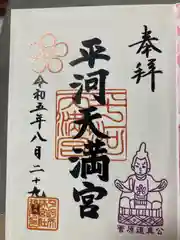 奉拝
平河天満宮
令和五年八月二十九日
菅原道真公